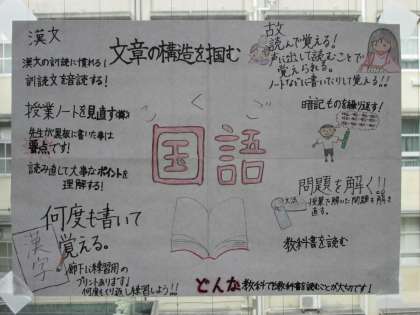 漢文
漢文の訓読に慣れる!
訓読文を暗読する!
文章の構造を掴む
古文
読んで覚える!
声に出して読むことで
覚えられる。
ノートなどに書いたりして覚える!!
授業ノートを見直す
先生が黒板に書いた事は
要点です!
読み直して大事なポイントを
理解する!
暗記ものを繰り返す!
国語
問題を解く!!
授業で解いた問題を解き
直す。
何度も書いて
覚える。
漢字
廊下に練習用の
プリントあります!
何度もくり返し練習しよう!!
教科書を読む
どんな教科でも教科書を読むことが大切です!